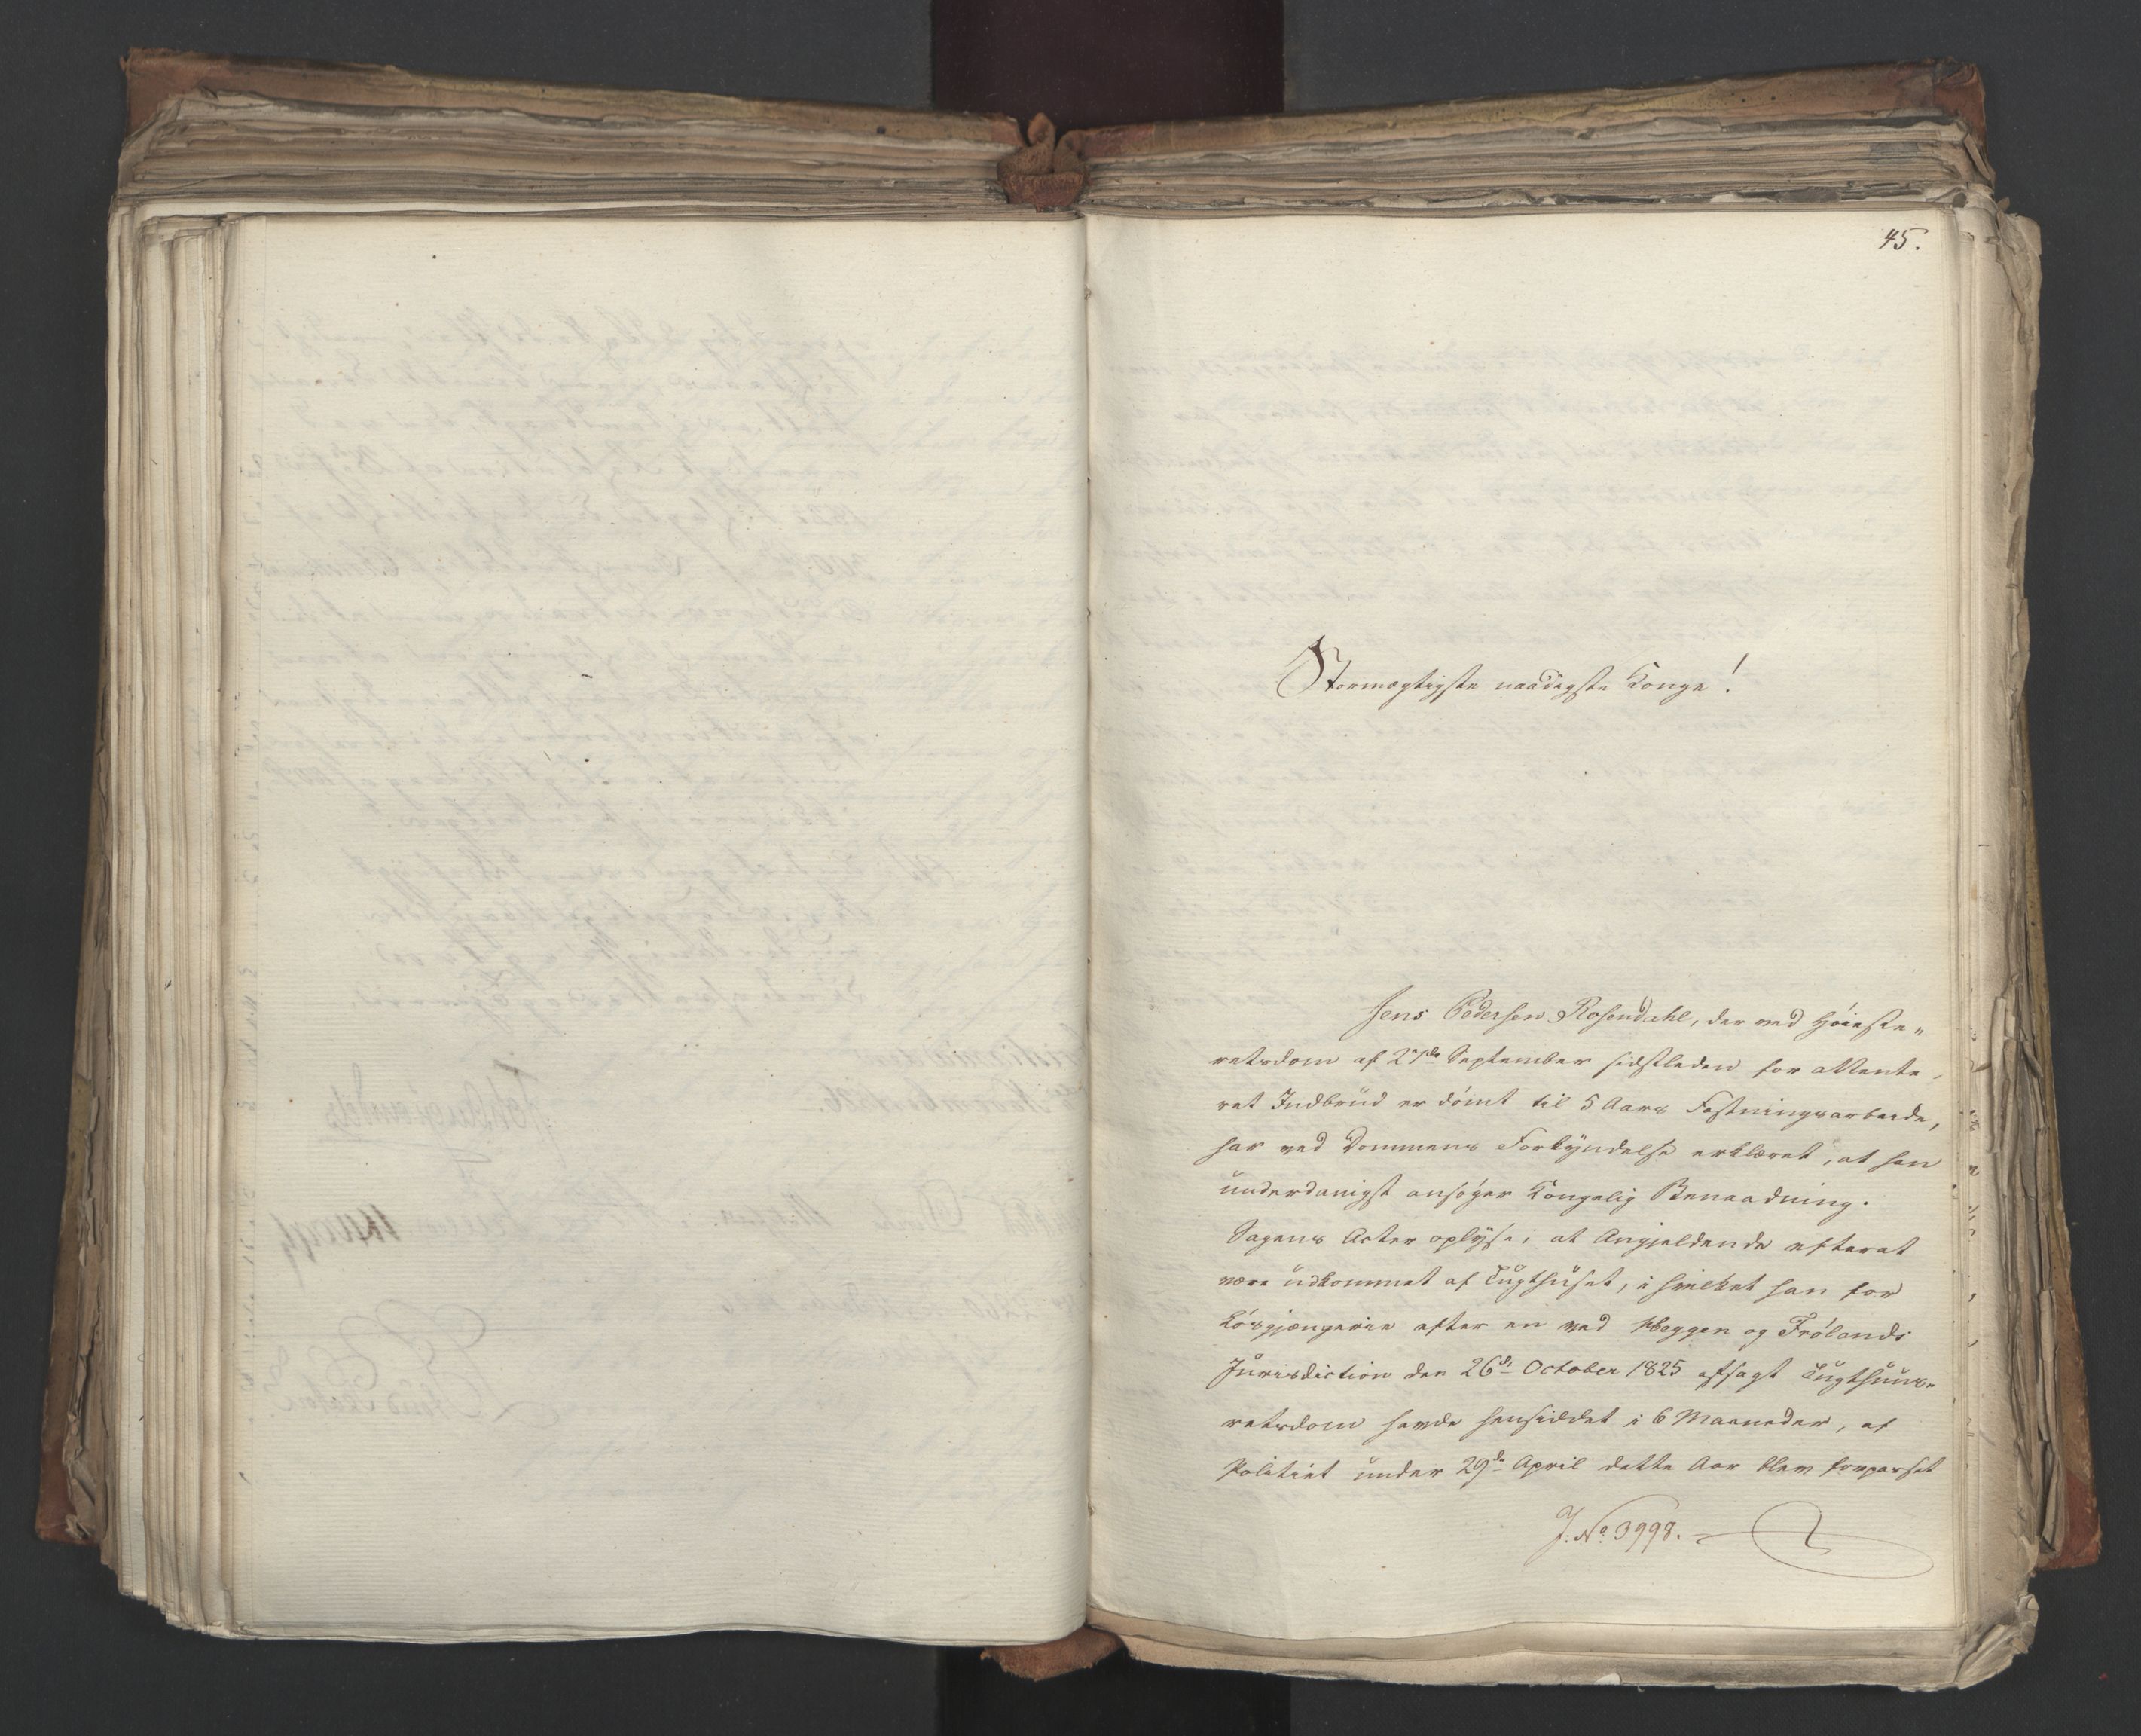 45.
Stormægtigste naadigste Konge!
Jens Pedersen Rosendahl, der ved Høieste„
retsdom af 27de September sidstleden for attente„
ret Indbrud er dømt til 5 Aars Fæstningsarbeide,
har ved Dommens Forkyndelse erklæret, at han
underdanigst ansøger Kongelig Benaadning.
Sagens Acter oplyse; at Angjeldende efterat
være udkommet af Tugthuset, i hvilket han for
Løsgjængerie efter en ved Heggen og Frølands
Jurisdiction den 26de October 1825 afsagt Tugthuus-
retsdom havde hensiddet i 6 Maaneder, af
Politiet under 29de April dette Aar blev forpasset
J. No 3998.